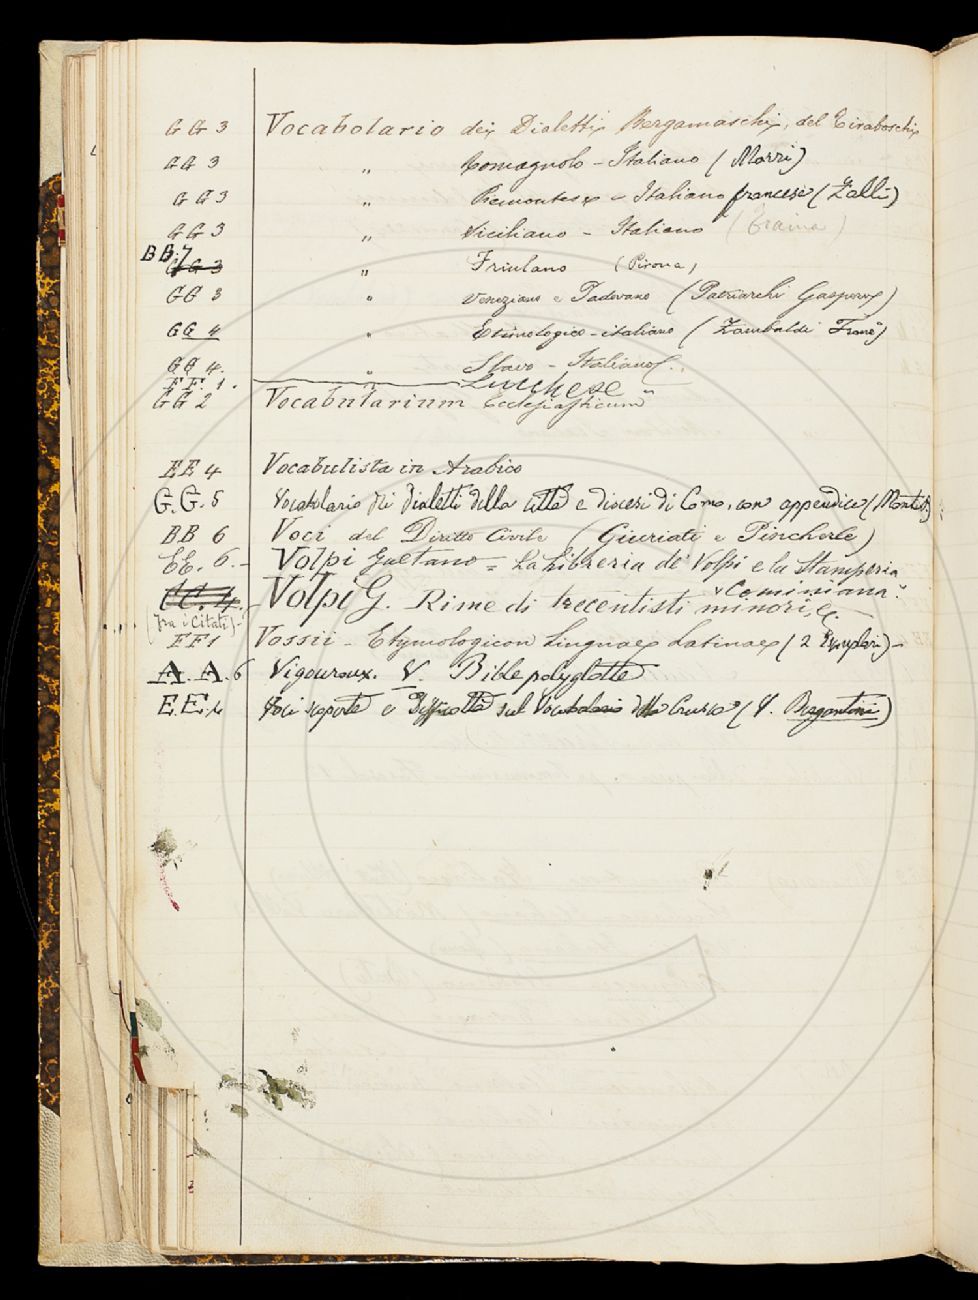 GG 3 Vocabolario dei Dialetti Bergamaschi, del Tiraboschi
GG 3 " Romagnolo - Italiano (Morri)
GG 3 " Piemontese - Italiano francese (Zalli)
GG 3 " Siciliano - Italiano (Traina)
BB.7 GG 3 " Friulano (Pirona)
GG 3 " Veneziano e Padovano (Patriarchi Gasparo)
GG 4 " Etimologico - italiano (Zambaldi Franc°)
GG 4. " Slavo - Italiano
FF. 1. Lucchese "
GG 2 Vocabularium Ecclesiasticum
EE 4 Vocabulista in Arabico
G.G. 5 Vocabolario dei dialetti della città e diocesi di Como, con appendice (Monti)
BB 6 Voci del Diritto Civile (Giuriati e Pincherle)
EE. 6. - Volpi Gaetano = La Libreria de' Volpi e la Stamperia
Cominiana.
CC. 4. - Volpi G. Rime di trecentisti minori,
(fra i Citati) -
FF 1 Vossii - Etymologicon Linguae Latinae (2 Esemplari) -
A. A. 6 Vigouroux. V. Bible polyglotte
E.E. 4 Voci scoperte e Difficoltà sul Vocabolario della Crusca (V. Bergantini)